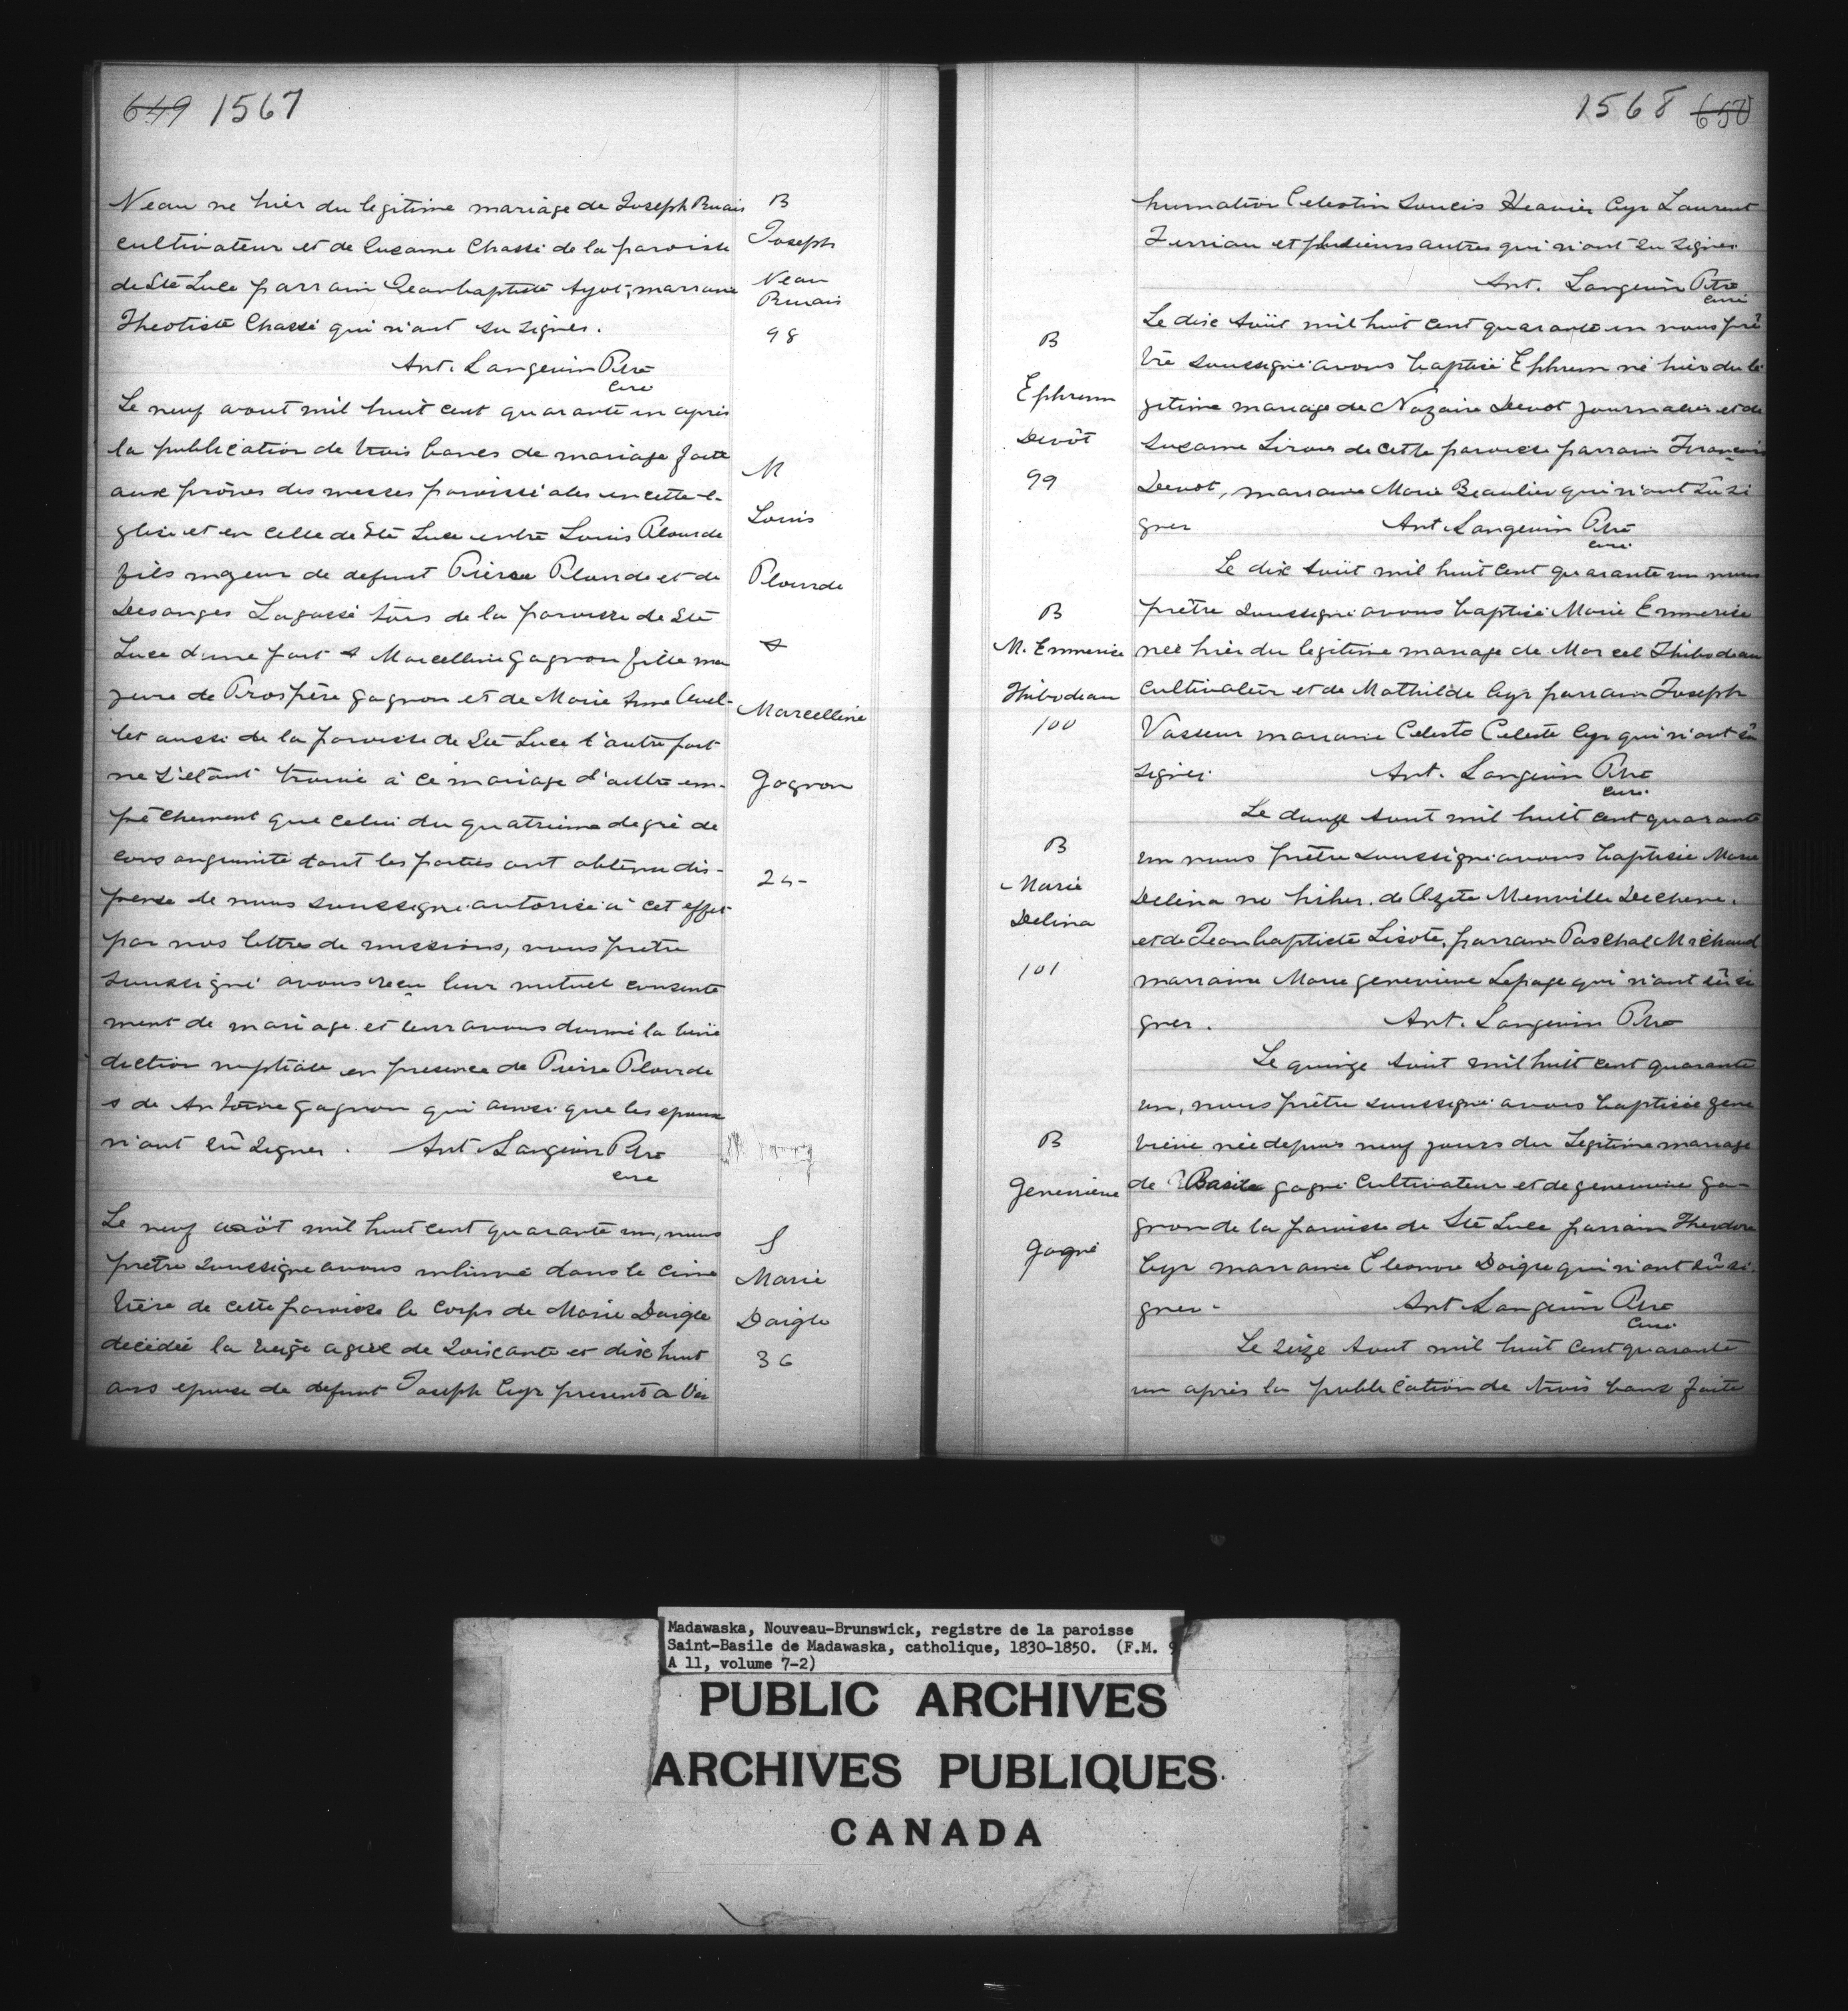 649 1567
Neau ne hier du legitime mariage de Joseph Ruais
cultivateur et de Suzanne Chassé de la paroisse
de Ste Luce parrain Jean baptiste Ayot, marraine
Theotiste Chassé qui n'ont su signer.
Ant. Langevin Ptre
Curé
B
Joseph
Neau
Ruais
98
Le neuf avout mil huit cent quarante un après
la publication de trois bancs de mariage faite
aux prônes des messes paroissiales en cette e-
glise et en celle de Ste Luce entre Louis Plourde
fils majeur de defunt Pierre Plourde et de
Desanges Lagassé tous de la paroisse de Ste
Luce d'une part & Marcelline Gagnon fille ma
jeure de Prospère Gagnon et de Marie Anne Ouel-
let aussi de la paroisse de Ste Luce l'autre part
ne s'étant trouvé à ce mariage d'autre em-
pêchement que celui du quatrième degré de
consanguinité dont les parties ont obtenu dis-
pense de nous soussigné autorisé à cet effet
par nos lettres de missions, nous pretre
soussigné avons reçu leur mutuel consente
ment de mariage et leur avons donné la béné
diction nuptiale en presence de Pierre Plourde
& de Antoine Gagnon qui ainsi que les epoux
n'ont sû signer. Ant. Langevin Ptre
curé
M
Louis
Plourde
&
Marcelline
Gagnon
25
Le neuf août mil huit cent quarante un, nous
prêtre soussigné avons inhumé dans le cime
tière de cette paroisse le corps de Marie Daigle
decédée la agée de soixante et dix huit
ans epouse de defunt Joseph Cyr present a l'in
S
Marie
Daigle
36
1568 650
humation Celestin Soucis Cyr Laurent
Terriau et plusieurs autres qui n'ont su signer
Ant. Langevin Ptre
curé
Le dix août mil huit cent quarante un nous prê
tre soussigné avons baptisé Ephrem né hier du lé
gitime mariage de Nazaire Devot journalier et de
Suzanne Sirois de cette paroisse parrain François
Devot, marraine Marie Beaulieu qui n'ont sû si
gner Ant. Langevin Ptre
curé.
B
Ephrem
Devôt
99
Le dix août mil huit cent quarante un nous
prêtre soussigné avons baptisé Marie Emmerise
née hier du legitime mariage de Marcel Thibodeau
Cultivateur et de Mathilde Cyr parrain Joseph
Vasseur marraine Celeste Celeste Cyr qui n'ont sû
signer. Ant. Langevin Ptre
curé.
B
M. Emmerise
Thibodeau
100
Le douze aout mil huit cent quarante
un nous prêtre soussigné avons baptisée Marie
Delina de Menville Dechene.
et de Jean baptiste Lisote, parrain Paschal Michaud
marraine Marie genevieve Lepage qui n'ont sû si
gner. Ant. Langevin Ptre
B
Marie
Delina
101
Le quinze août mil huit cent quarante
un, nous prêtre soussigné avons baptisée gene
viève née depuis neuf jours du Legitime mariage
de Basile gagné Cultivateur et de genevieve ga-
gnon de la paroisse de Ste Luce parrain Theodore
Cyr marraine Eleonore Daigle qui n'ont sû si
gner. Ant. Langevin Ptre
Curé.
B
Genevieve
Gagné
Le seize Aout mil huit cent quarante
un après la publication de trois bans faite
Madawaska, Nouveau-Brunswick, registre de la paroisse
Saint-Basile de Madawaska, catholique, 1830-1850. (F.M. 9
A 11, volume 7-2)
PUBLIC ARCHIVES
ARCHIVES PUBLIQUES
CANADA